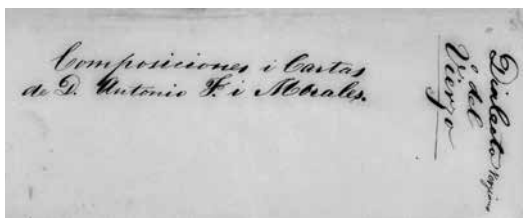 Composiciones i Cartas
de D. Antonio F. i Morales.
Dialecto
del
Vierzo